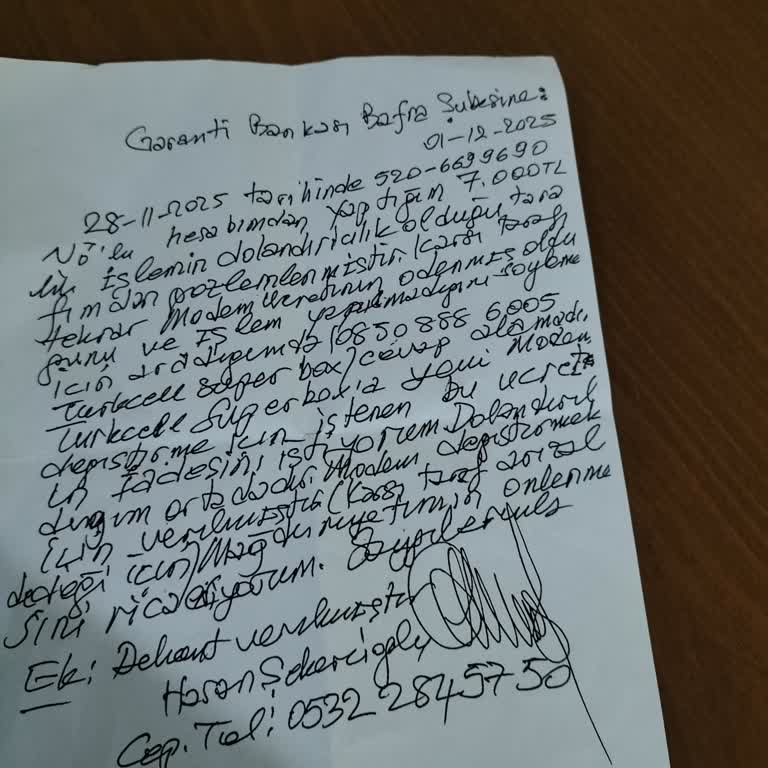 Garanti Bankası Bafra Şubesine:
01-12-2025
28-11-2025 tarihinde 520-6699690
No'lu hesabımdan yaptığım 7.000TL
lik İşlemin dolandırıcılık olduğu tara
fımdan gözlemlenmiştir. (Karşı taraf
tekrar Modem ücretinin ödenmiş oldu
ğunu ve İşlem yapılmadığını söyleme
için aradığımda (0850 888 6.005
Turkcell süper box) cevap alamadı.
Turkcell Süperbox'a yeni Modem
değiştirme için istenen bu ücret
in İadesini istiyorum Dolandırıl
dığım ortadadır. Modem değiştirmek
İçin verilmiştir (Karşı taraf arızal
dediği için) Mağduriyetimin önlenme
sini rica ediyorum. Saygılarımla
Ek: Dekont verilmiştir
Hasan Şekercioğlu
Cep. Tel: 0532 2845750